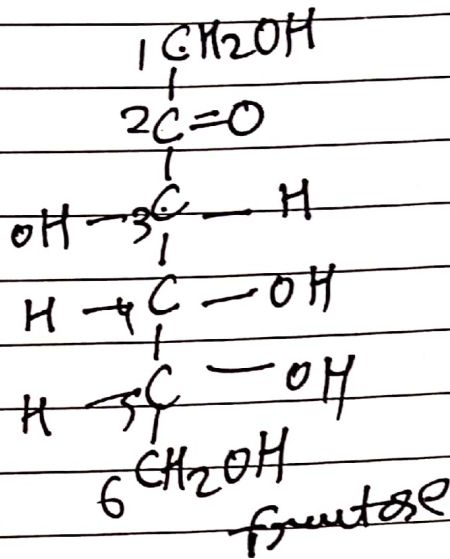 1 CH2OH
2C=O
OH - 3C - H
H - 4C - OH
H - 5C - OH
6 CH2OH
fructose